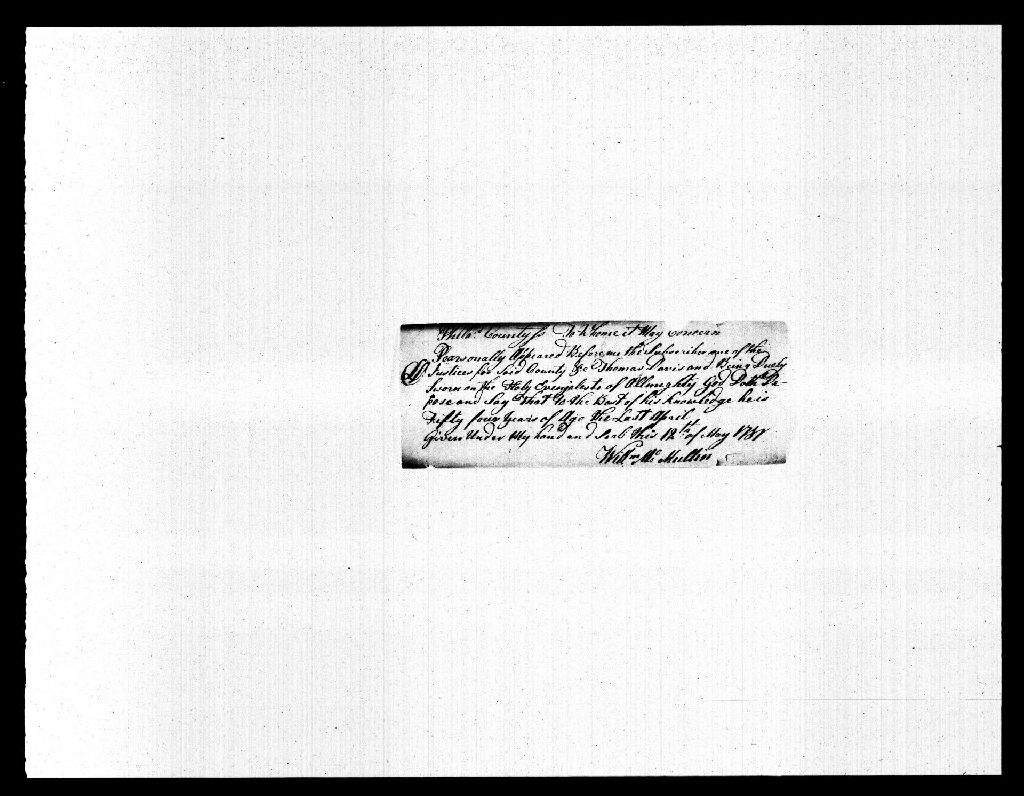 Philla. County ss To whome it May concern
Pearsonally Appeared Before me the Subscriber one of the
Justices for Said County &c Thomas Davis and Being Duely
Sworn on the Holy Evengalests of Allmaghty God Doth De-
pose and Say That to the Best of his knowledge he is
Fifty four Years of Age the Last April
Given Under My hand and Seal this 12th of May 1757
Willm Mc Mullin